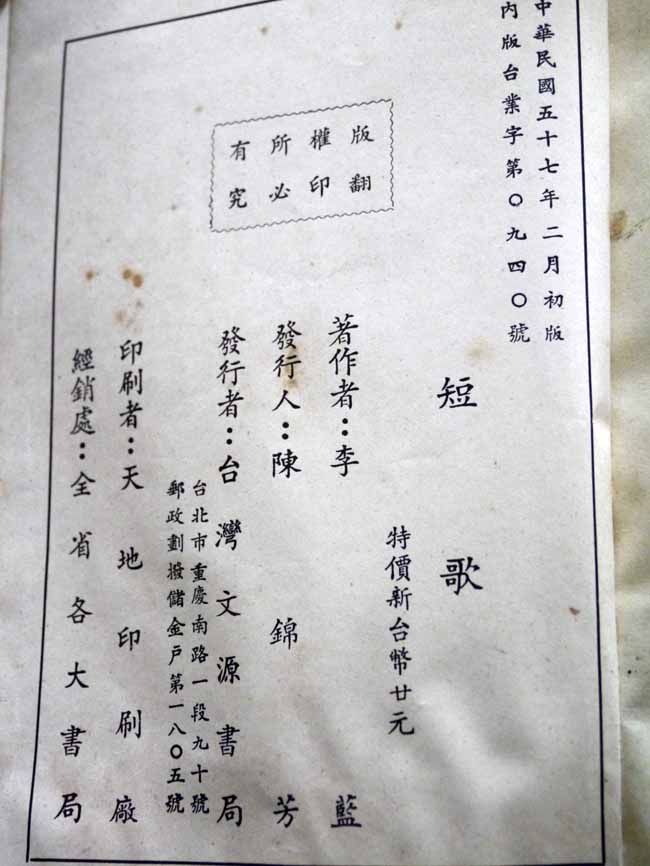 中華民國五十七年二月初版
內版台業字第〇九四〇號
版權所有
翻印必究
短歌
特價新台幣廿元
著作者：李藍
發行人：陳錦芳
發行者：台灣文源書局
台北市重慶南路一段九十號
郵政劃撥儲金戶第一八〇五號
印刷者：天地印刷廠
經銷處：全省各大書局